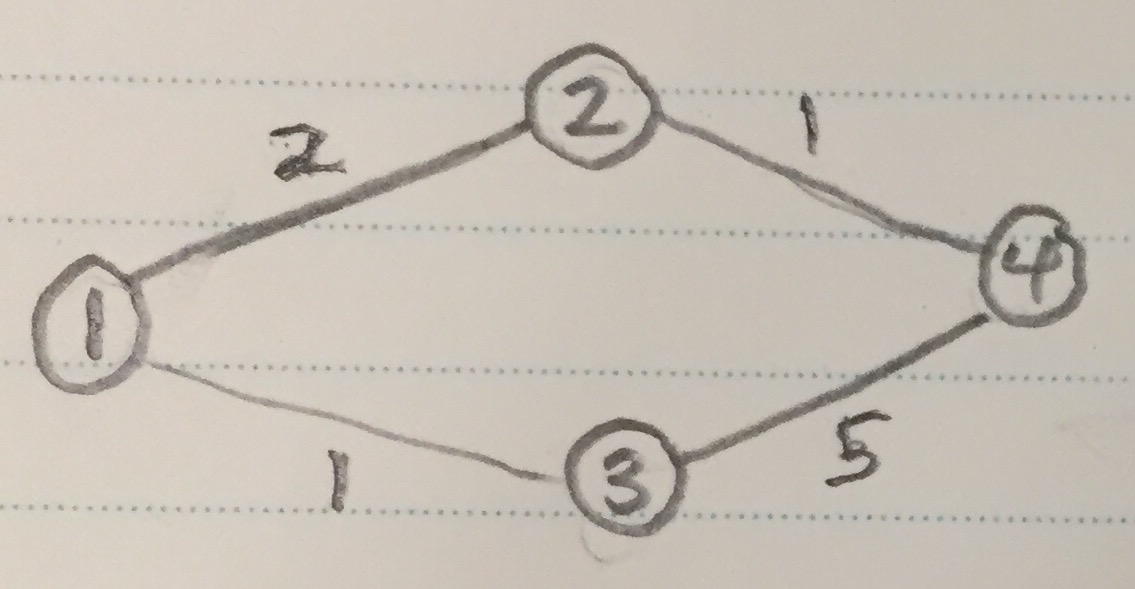 2
2
1
1
4
1
3
5